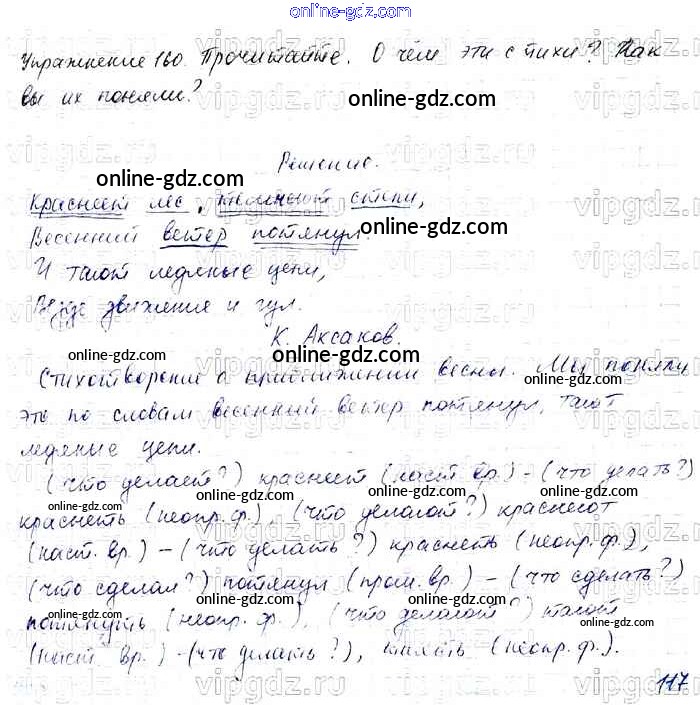 online-gdz.com
Упражнение 160. Прочитайте. О чём эти стихи? Как
вы их поняли?
online-gdz.com
Решение.
online-gdz.com
Краснеет лес, степи,
online-gdz.com
Весенний ветер потянул.
И тают ледяные цепи,
online-gdz.com
Везде движение и гул.
К. Аксаков.
online-gdz.com
Стихотворение о приближении весны. Мы поняли
online-gdz.com
это по словам весенний ветер потянул, тают
online-gdz.com
ледяные цепи.
(что делает?) краснеет (наст. вр.) - (что делать?)
online-gdz.com
краснеть (неопр. ф.), (что делают?) краснеют
online-gdz.com
(наст. вр.) - (что делать?) краснеть (неопр. ф.),
online-gdz.com
(что сделал?) потянул (прош. вр.) - (что сделать?)
online-gdz.com
потянуть (неопр. ф.), (что делают?) тают
online-gdz.com
(наст. вр.) - (что делать?), таять (неопр. ф.).
online-gdz.com
117